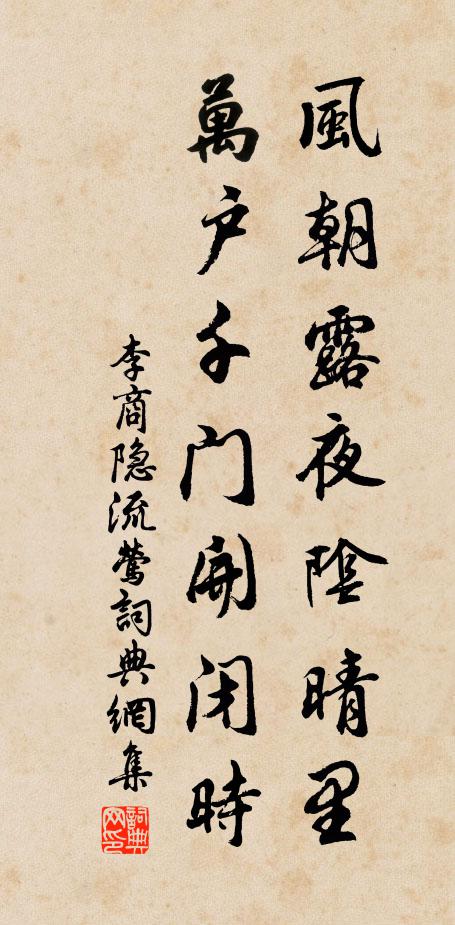 風朝露夜陰晴里
萬户千门開闭時
李商隐流鶯詞典網集
詞典网印